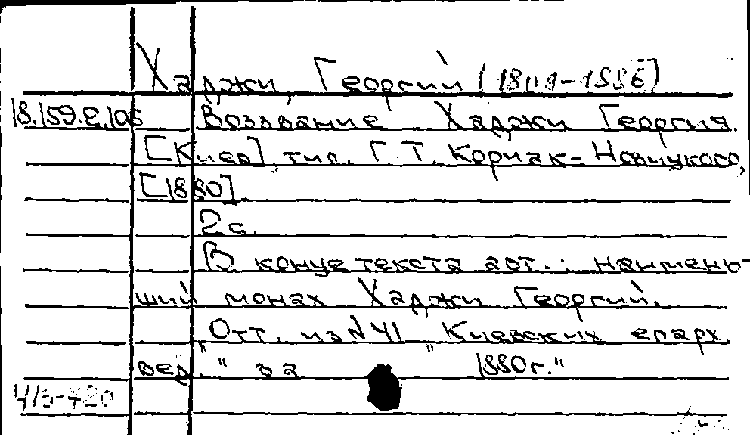 Хаджи, Георгий (1809-1886)
18.159.2.105 Воззвание Хаджи Георгия.
[Киев], тип. Г.Т. Корчак-Новицкого,
[1880]
2 с.
В конце текста авт.: наимень-
ший монах Хаджи Георгий.
Отт. из N 41 "Киевских епарх.
вед." за 1880 г."
415-420